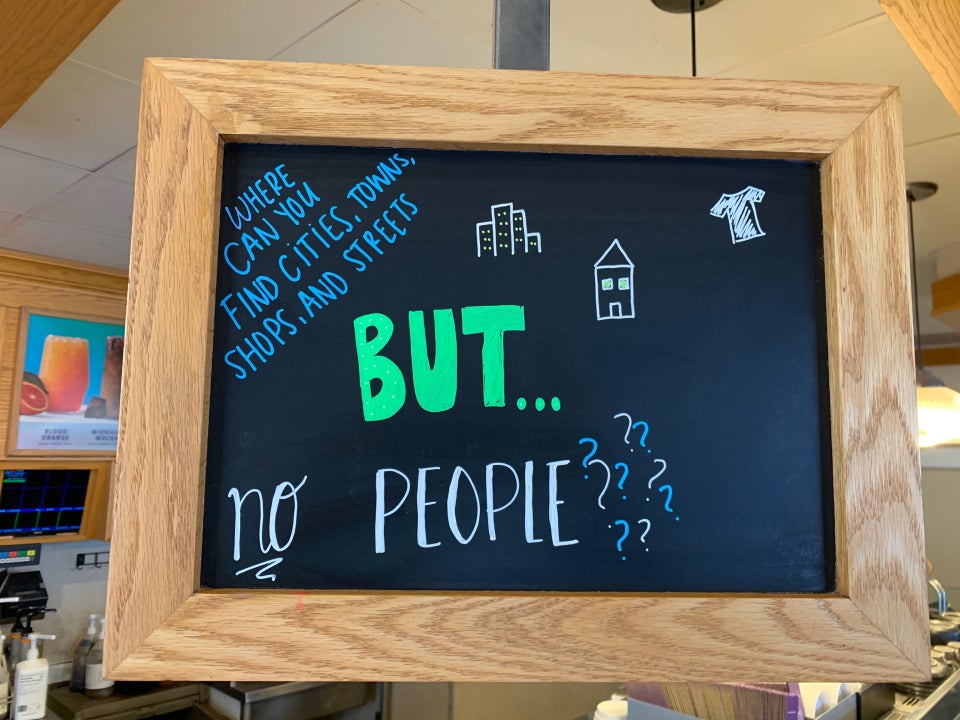 WHERE
CAN YOU
FIND CITIES, TOWNS,
SHOPS, AND STREETS
BUT...
no PEOPLE?????????
BLOOD
ORANGE